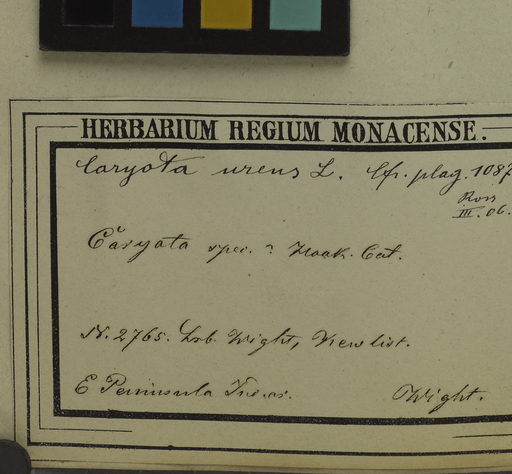 HERBARIUM REGIUM MONACENSE.
Caryota urens L. Cfr. plag. 1087
Ross
III. 06.
Caryota spec. ? Hook. Cat.
N. 2765. hrb. Wight, Kew list.
E Peninsula Ind. or.
Wight.